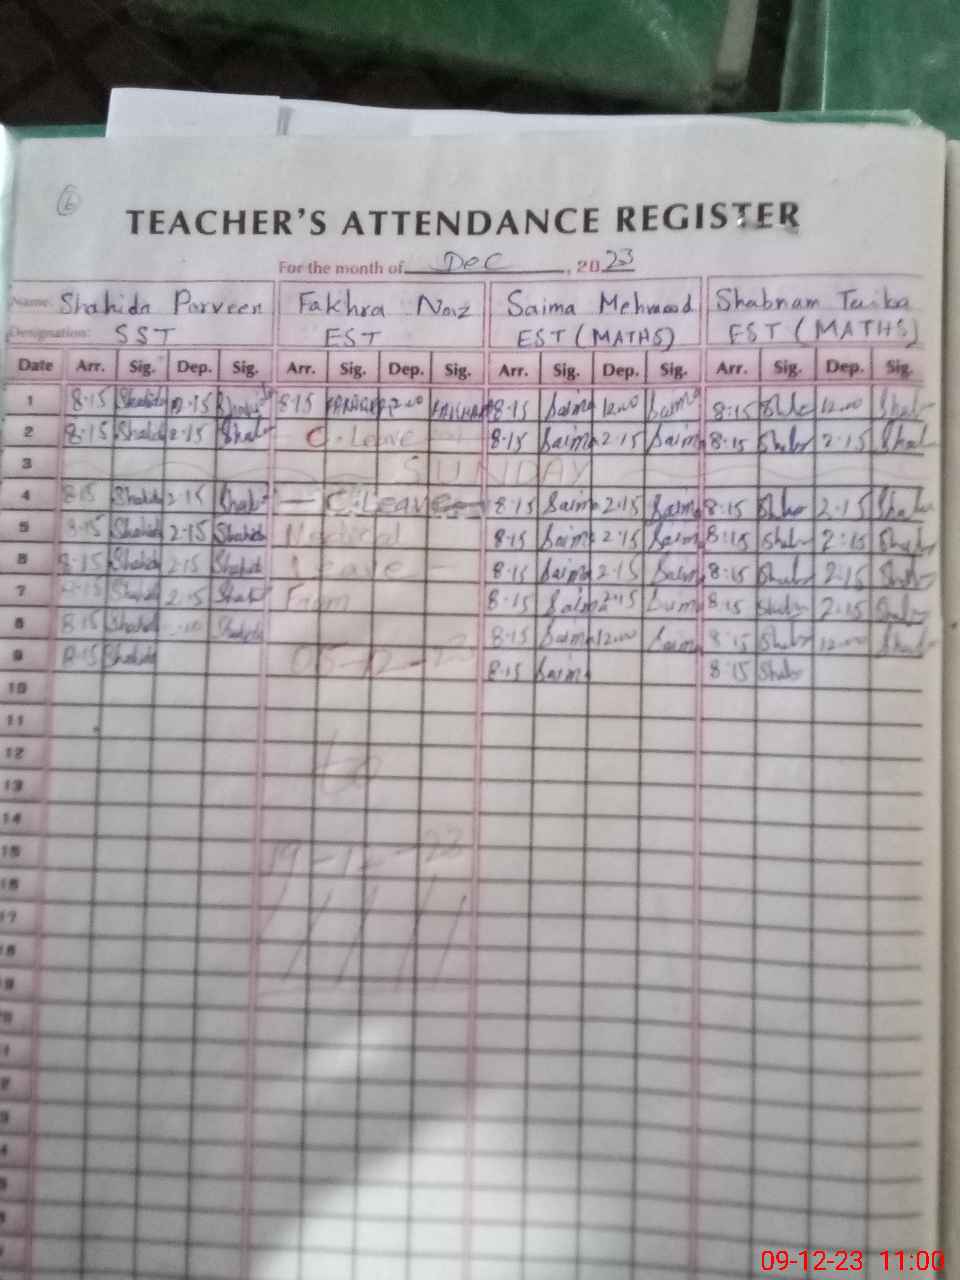 6
TEACHER'S ATTENDANCE REGISTER
For the month of Dec, 2023
Name: Shahida Parveen Fakhra Naz Saima Mehmood Shabnam
Designation: SST EST EST (MATHS) EST (MATHS)
Date Arr. Sig. Dep. Sig. Arr. Sig. Dep. Sig. Arr. Sig. Dep. Sig. Arr. Sig. Dep. Sig.
1 8:15 Shahida 8:15 8:15 Saima 12:00 Saima 8:15 12:00
2 8:15 Shahid 2:15 C. Leave 8:15 Saima 2:15 Saima 8:15 2:15
3 SUNDAY
4 8:15 Shahid 2:15 C. Leave 8:15 Saima 2:15 Saima 8:15 2:15
5 8:15 Shahid 2:15 Shahid Medical 8:15 Saima 2:15 Saim 8:15 2:15
6 8:15 Shahid 2:15 Shahid Leave - 8:15 Saima 2:15 Saim 8:15 2:15
7 8:15 Shahid 2:15 Shahid From 8:15 Saima 2:15 Saim 8:15 2:15
8 8:15 Shahid 8:15 Saima 12:00 Saima 8:15 12:00
9 8:15 Shahid 05-12-23 8:15 Saima 8:15
10
11
12
13 to
14
15 19-12-23
16
17
18
09-12-23 11:00